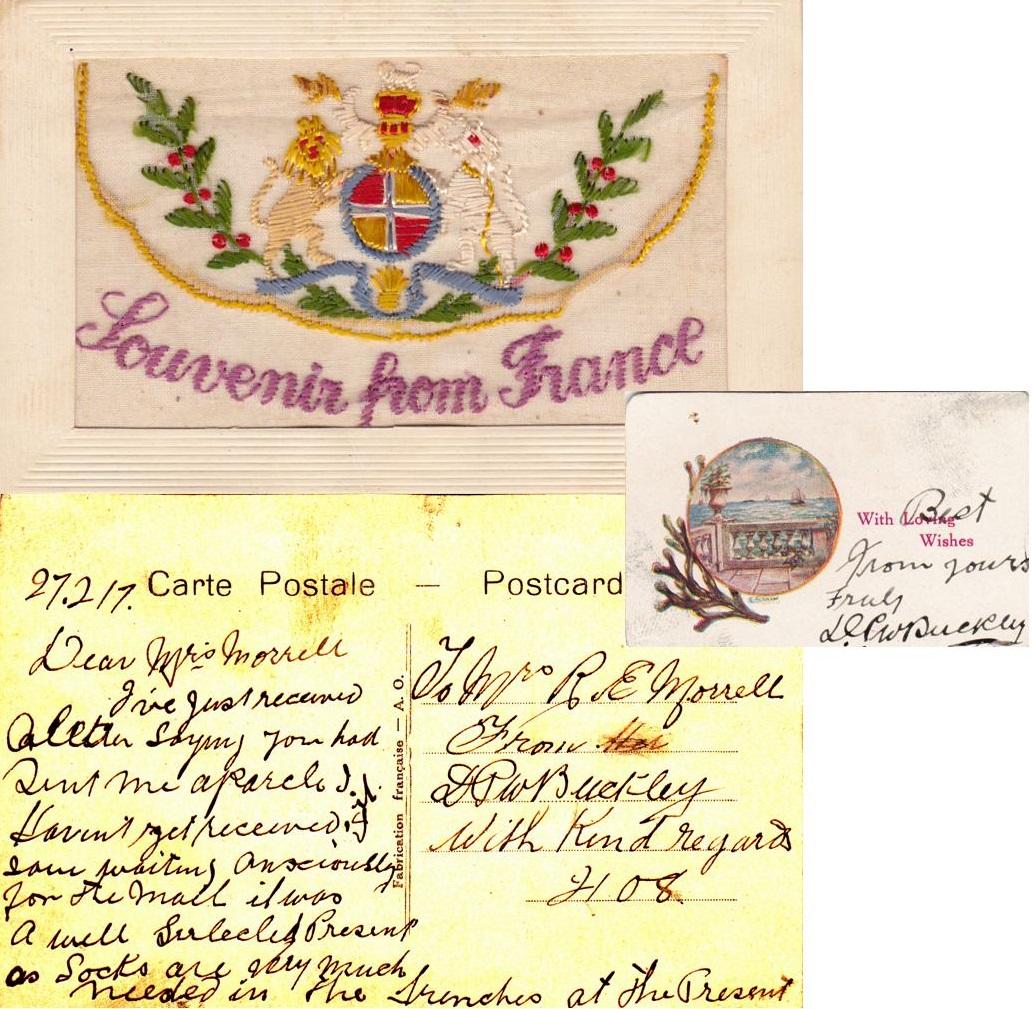 Souvenir from France
With Loving Best
Wishes
From yours
Truly
D P W Buckley
27.2.17.
Carte Postale — Postcard
Dear Mrs Morrell
I've just received
a letter saying you had
sent me a parcle I
Havent yet received it
some waiting anxciously
for the mail it was
A well Sellected Present
as Socks are very much
needed in the trenches at the Present
Fabrication française — A. O.
To Mrs R. E Morrell
From
D P W Buckley
With Kind regards